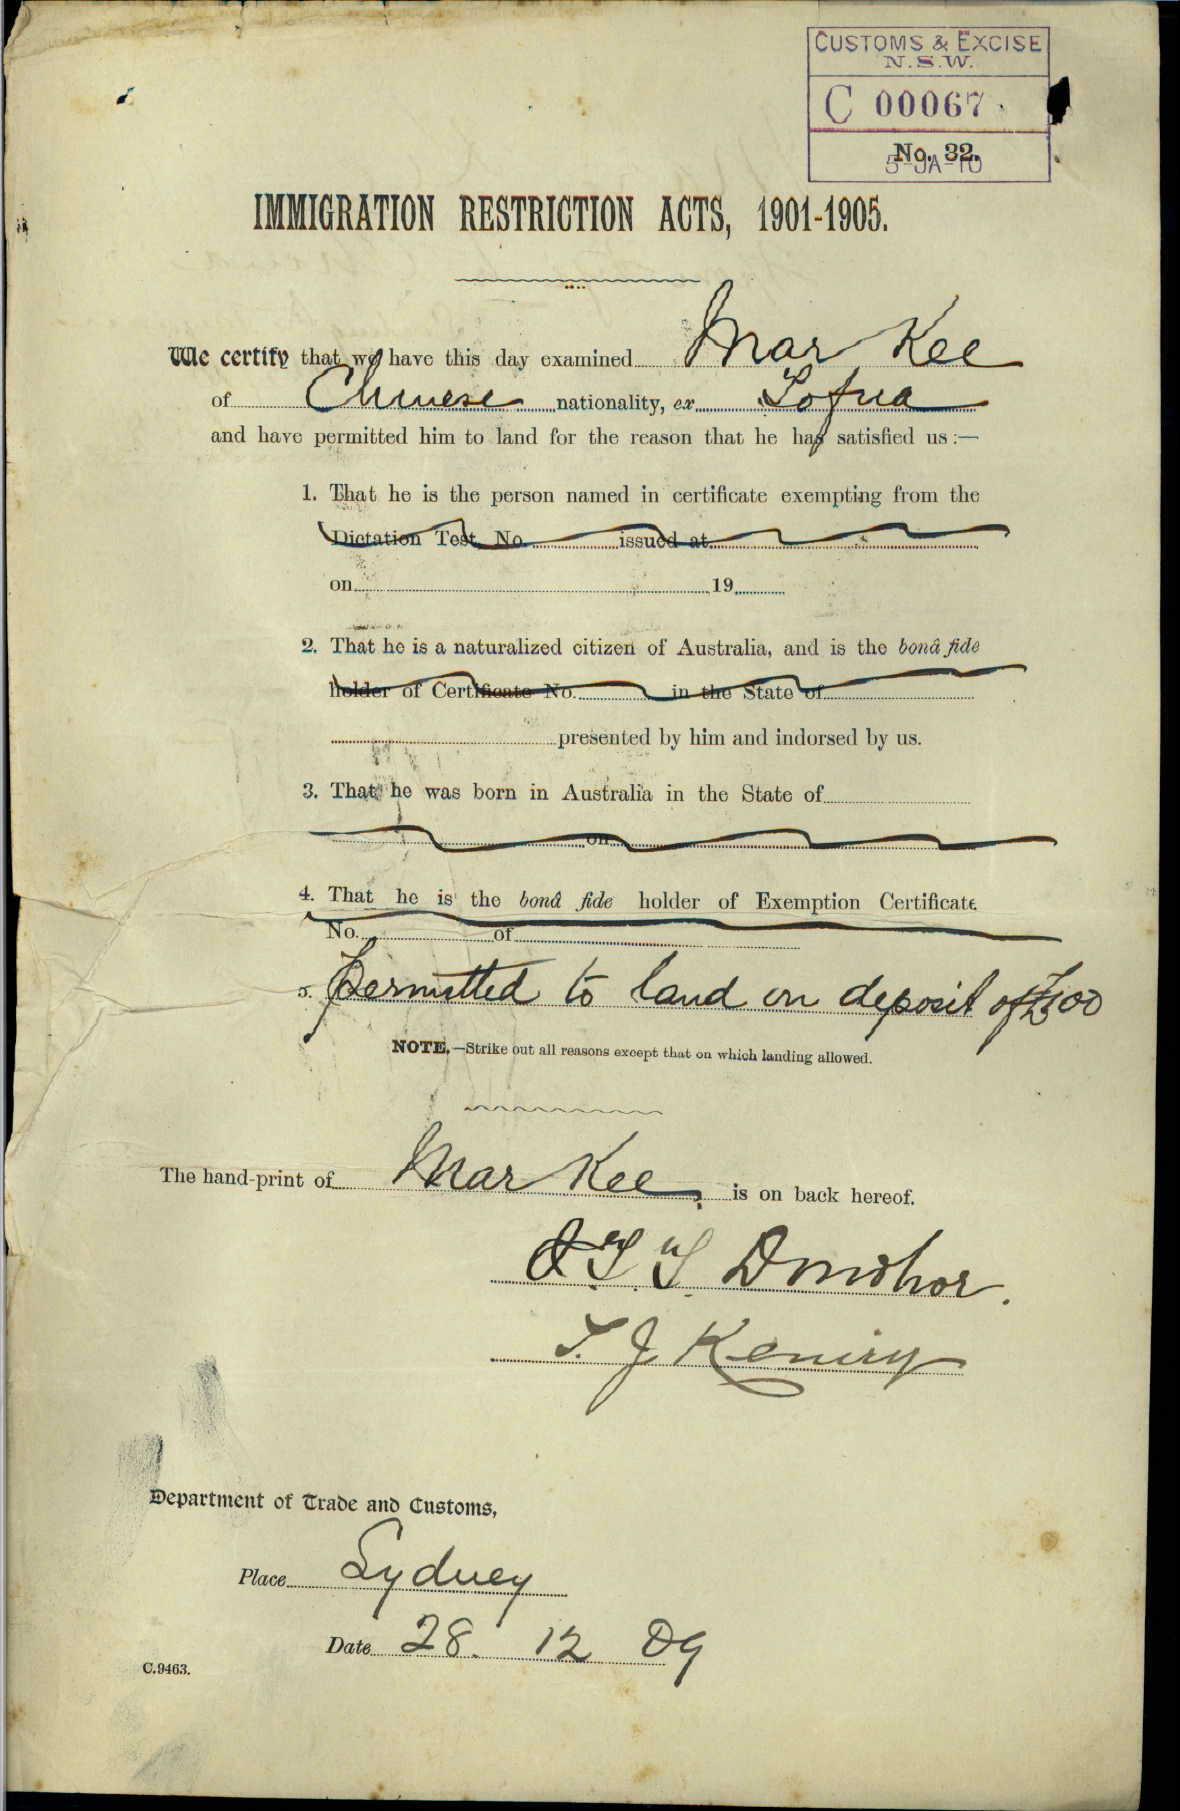 CUSTOMS & EXCISE
N.S.W.
C 00067
No. 32.
5-JA-10
IMMIGRATION RESTRICTION ACTS, 1901-1905.
We certify that we have this day examined Mar Kee
of Chinese nationality, ex Tofua
and have permitted him to land for the reason that he has satisfied us :—
1. That he is the person named in certificate exempting from the
Dictation Test No. issued at
on 19
2. That he is a naturalized citizen of Australia, and is the bonâ fide
holder of Certificate No. in the State of
presented by him and indorsed by us.
3. That he was born in Australia in the State of
on
4. That he is the bonâ fide holder of Exemption Certificate
No. of
5. Permitted to land on deposit of £100
NOTE.—Strike out all reasons except that on which landing allowed.
The hand-print of Mar Kee is on back hereof.
J T T Donohoe.
T. J Keniry
Department of Trade and Customs,
Place Sydney
Date 28. 12 09
C.9463.